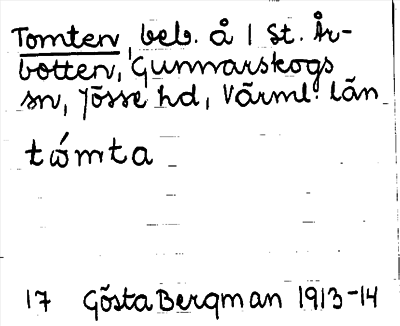 Tomten, beb. å 1 St. År-
botten, Gunnarskogs
sn, Jösse hd, Värml. län
tómta
17 Gösta Bergman 1913-14